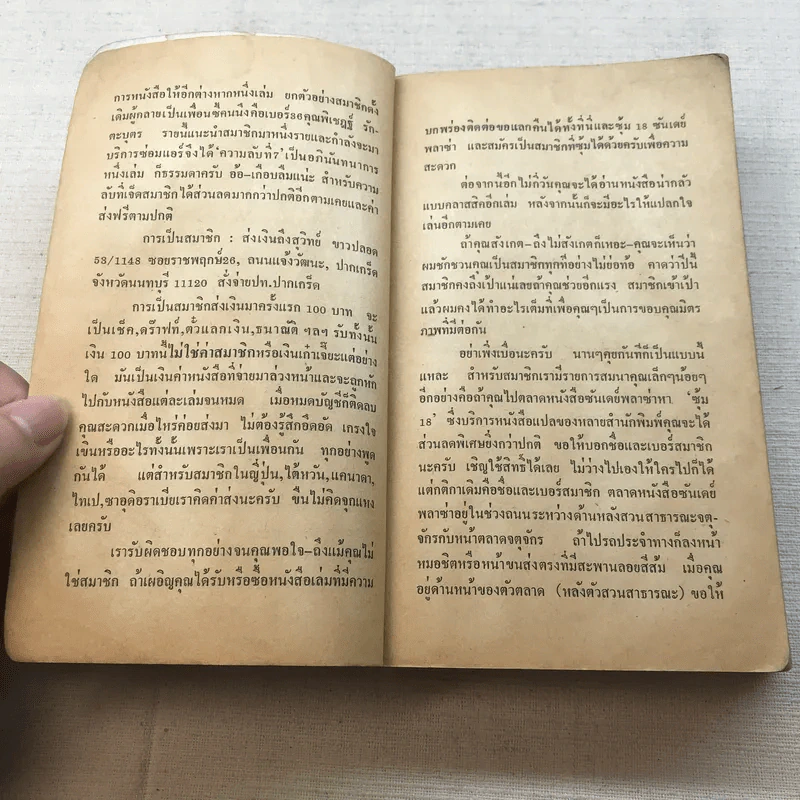 การหนังสือให้อีกต่างหากหนึ่งเล่ม ยกตัวอย่างสมาชิกดั้ง
เดิมผู้กลายเป็นเพื่อนซี้คนนึงคือเบอร์36คุณพิเชฏฐ์ รัก-
ตะบุตร รายนี้แนะนำสมาชิกมาหนึ่งรายและกำลังจะมา
บริการซ่อมแอร์จึงได้ 'ความลับที่7' เป็นอภินันทนาการ
หนึ่งเล่ม ก็ธรรมดาครับ อ้อ-เกือบลืมแน่ะ สำหรับความ
ลับที่เจ็ดสมาชิกได้ส่วนลดมากกว่าปกติอีกตามเคยและค่า
ส่งฟรีตามปกติ
การเป็นสมาชิก : ส่งเงินถึงสุวิทย์ ขาวปลอด
53/1148 ซอยราชพฤกษ์26, ถนนแจ้งวัฒนะ, ปากเกร็ด
จังหวัดนนทบุรี 11120 สั่งจ่ายปท.ปากเกร็ด
การเป็นสมาชิกส่งเงินมาครั้งแรก 100 บาท จะ
เป็นเช็ค,ดร๊าฟท์,ตั๋วแลกเงิน,ธนาณัติ ฯลฯ รับทั้งนั้น
เงิน 100 บาทนี้ไม่ใช่ค่าสมาชิกหรือเงินเก๋าเจี๊ยะแต่อย่าง
ใด มันเป็นเงินค่าหนังสือที่จ่ายมาล่วงหน้าและจะถูกหัก
ไปกับหนังสือแต่ละเล่มจนหมด เมื่อหมดบัญชีก็ติดลบ
คุณสะดวกเมื่อไหร่ค่อยส่งมา ไม่ต้องรู้สึกอึดอัด เกรงใจ
เขินหรืออะไรทั้งนั้นเพราะเราเป็นเพื่อนกัน ทุกอย่างพูด
กันได้ แต่สำหรับสมาชิกในญี่ปุ่น,ไต้หวัน,แคนาดา,
ไทเป,ซาอุดิอราเบียเราคิดค่าส่งนะครับ ขืนไม่คิดจุกแหง
เลยครับ
เรารับผิดชอบทุกอย่างจนคุณพอใจ-ถึงแม้คุณไม่
ใช่สมาชิก ถ้าเผอิญคุณได้รับหรือซื้อหนังสือเล่มที่มีความ
บกพร่องติดต่อขอแลกคืนได้ทั้งที่นี่และซุ้ม 18 ซันเดย์
พลาซ่า และสมัครเป็นสมาชิกที่ซุ้มได้ด้วยครับเพื่อความ
สะดวก
ต่อจากนี้อีกไม่กี่วันคุณจะได้อ่านหนังสือน่ากลัว
แบบคลาสสิคอีกเล่ม หลังจากนั้นก็จะมีอะไรให้แปลกใจ
เล่นอีกตามเคย
ถ้าคุณสังเกต-ถึงไม่สังเกตก็เหอะ-คุณจะเห็นว่า
ผมชักชวนคุณเป็นสมาชิกทุกทีอย่างไม่ย่อท้อ คาดว่าปีนี้
สมาชิกคงถึงเป้าแน่เลยถ้าคุณช่วยอีกแรง สมาชิกเข้าเป้า
แล้วผมคงได้ทำอะไรเต็มที่เพื่อคุณๆเป็นการขอบคุณมิตร
ภาพที่มีต่อกัน
อย่าเพิ่งเบื่อนะครับ นานๆคุยกันทีก็เป็นแบบนี้
แหละ สำหรับสมาชิกเรามีรายการสมนาคุณเล็กๆน้อยๆ
อีกอย่างคือถ้าคุณไปตลาดหนังสือซันเดย์พลาซ่าหา 'ซุ้ม
18' ซึ่งบริการหนังสือแปลของหลายสำนักพิมพ์คุณจะได้
ส่วนลดพิเศษยิ่งกว่าปกติ ขอให้บอกชื่อและเบอร์สมาชิก
นะครับ เชิญใช้สิทธิ์ได้เลย ไม่ว่างไปเองให้ใครไปก็ได้
แต่กติกาเดิมคือชื่อและเบอร์สมาชิก ตลาดหนังสือซันเดย์
พลาซ่าอยู่ในช่วงถนนระหว่างด้านหลังสวนสาธารณะจตุ-
จักรกับหน้าตลาดจตุจักร ถ้าไปรถประจำทางก็ลงหน้า
หมอชิตหรือหน้าขนส่งตรงที่มีสะพานลอยสีส้ม เมื่อคุณ
อยู่ด้านหน้าของตัวตลาด (หลังตัวสวนสาธารณะ) ขอให้